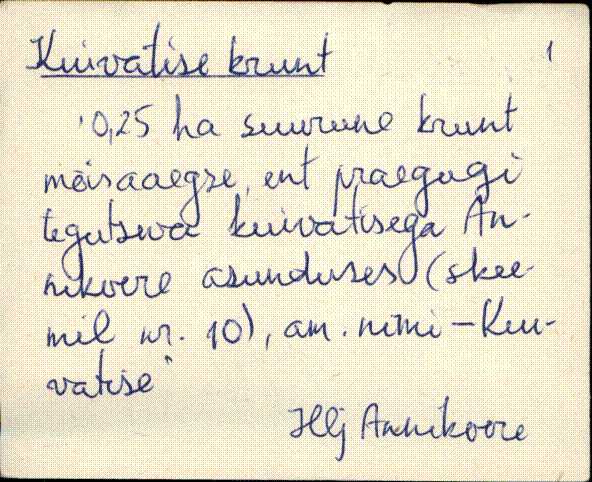 Kuivatise krunt 1
"0,25 ha suurune krunt
mõisaaegse, ent praegugi
tegutseva kuivatisega An-
nikvere asunduses (skee-
mil nr. 10), am. nimi - Kui-
vatise"
Hlj Annikvere